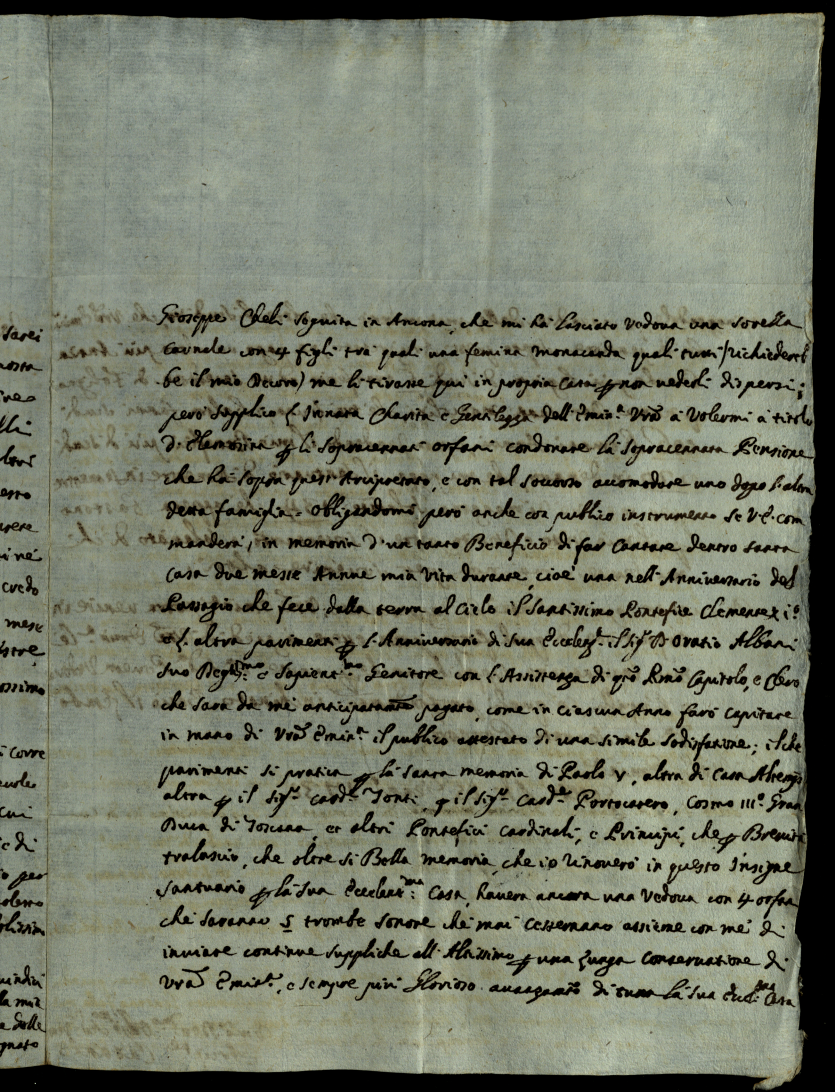 sarei
Gioseppe Cheli seguita in Ancona, che mi hà lasciato vedova una sorella
carnale con 4 figli trà quali una femina monacanda quali tutti (richiedereb
be il mio Decoro) me li tirasse quì in propria Casa p non vederli dispersi;
però supplico l'innata Charità e Gentilezza dell'Emin.ª Vrã à Volermi à titolo
d'Elemosina p li sopracennati orfani condonare la sopracennata Pensione
che hà sopra quest'Arcipretato, e con tal soccorso accomodare uno dopo l'altro
detta famiglia. obligandomi però anche con publico instrumento se V.E. com
manderà, in memoria d'un tanto Beneficio di far Cantare dentro Santa
Casa due messe Annue mia Vita durante, cioè una nell'Anniversario del
Passagio che fece dalla terra al Cielo il Santissimo Pontefice Clemente xi.º
e l'altra parimenti p l'Anniversario di Sua Eccelenz.ª il Sig.r D Oratio Albani
suo Degniss.mo e Sapient.mo Genitore con l'Assistenza di qto Rmo Capitolo, e Clero
che sarà da me anticipatamte pagato, come in ciascun Anno farò capitare
in mano di Vrã Emin.ª il publico attestato di una simile sodisfatione; il che
parimenti si pratica p la santa memoria di Paolo V, altra di Casa Altemps
altra p il Sig.r Card.le Tonti, p il Sig.r Card.le Portocarero, Cosmo III.º Gran
Duca di Toscana, et altri Pontefici Cardinali, e Principi, che p Brevità
tralascio, che oltre sì Bella memoria, che io rinoverò in questo Insigne
Santuario p la sua Eccelent.ma Casa, haverà ancora una Vedova con 4 orfani
che saranno 5 trombe sonore che mai cesseranno assieme con me di
inviare continue suppliche all'Altissimo p una Lunga Conservatione di
Vrã Emin.ª, e sempre più Glorioso avanzamto di tutta la sua Eccl.ma Casa
credo
mese
corre
cui
di
per
la mia
delle